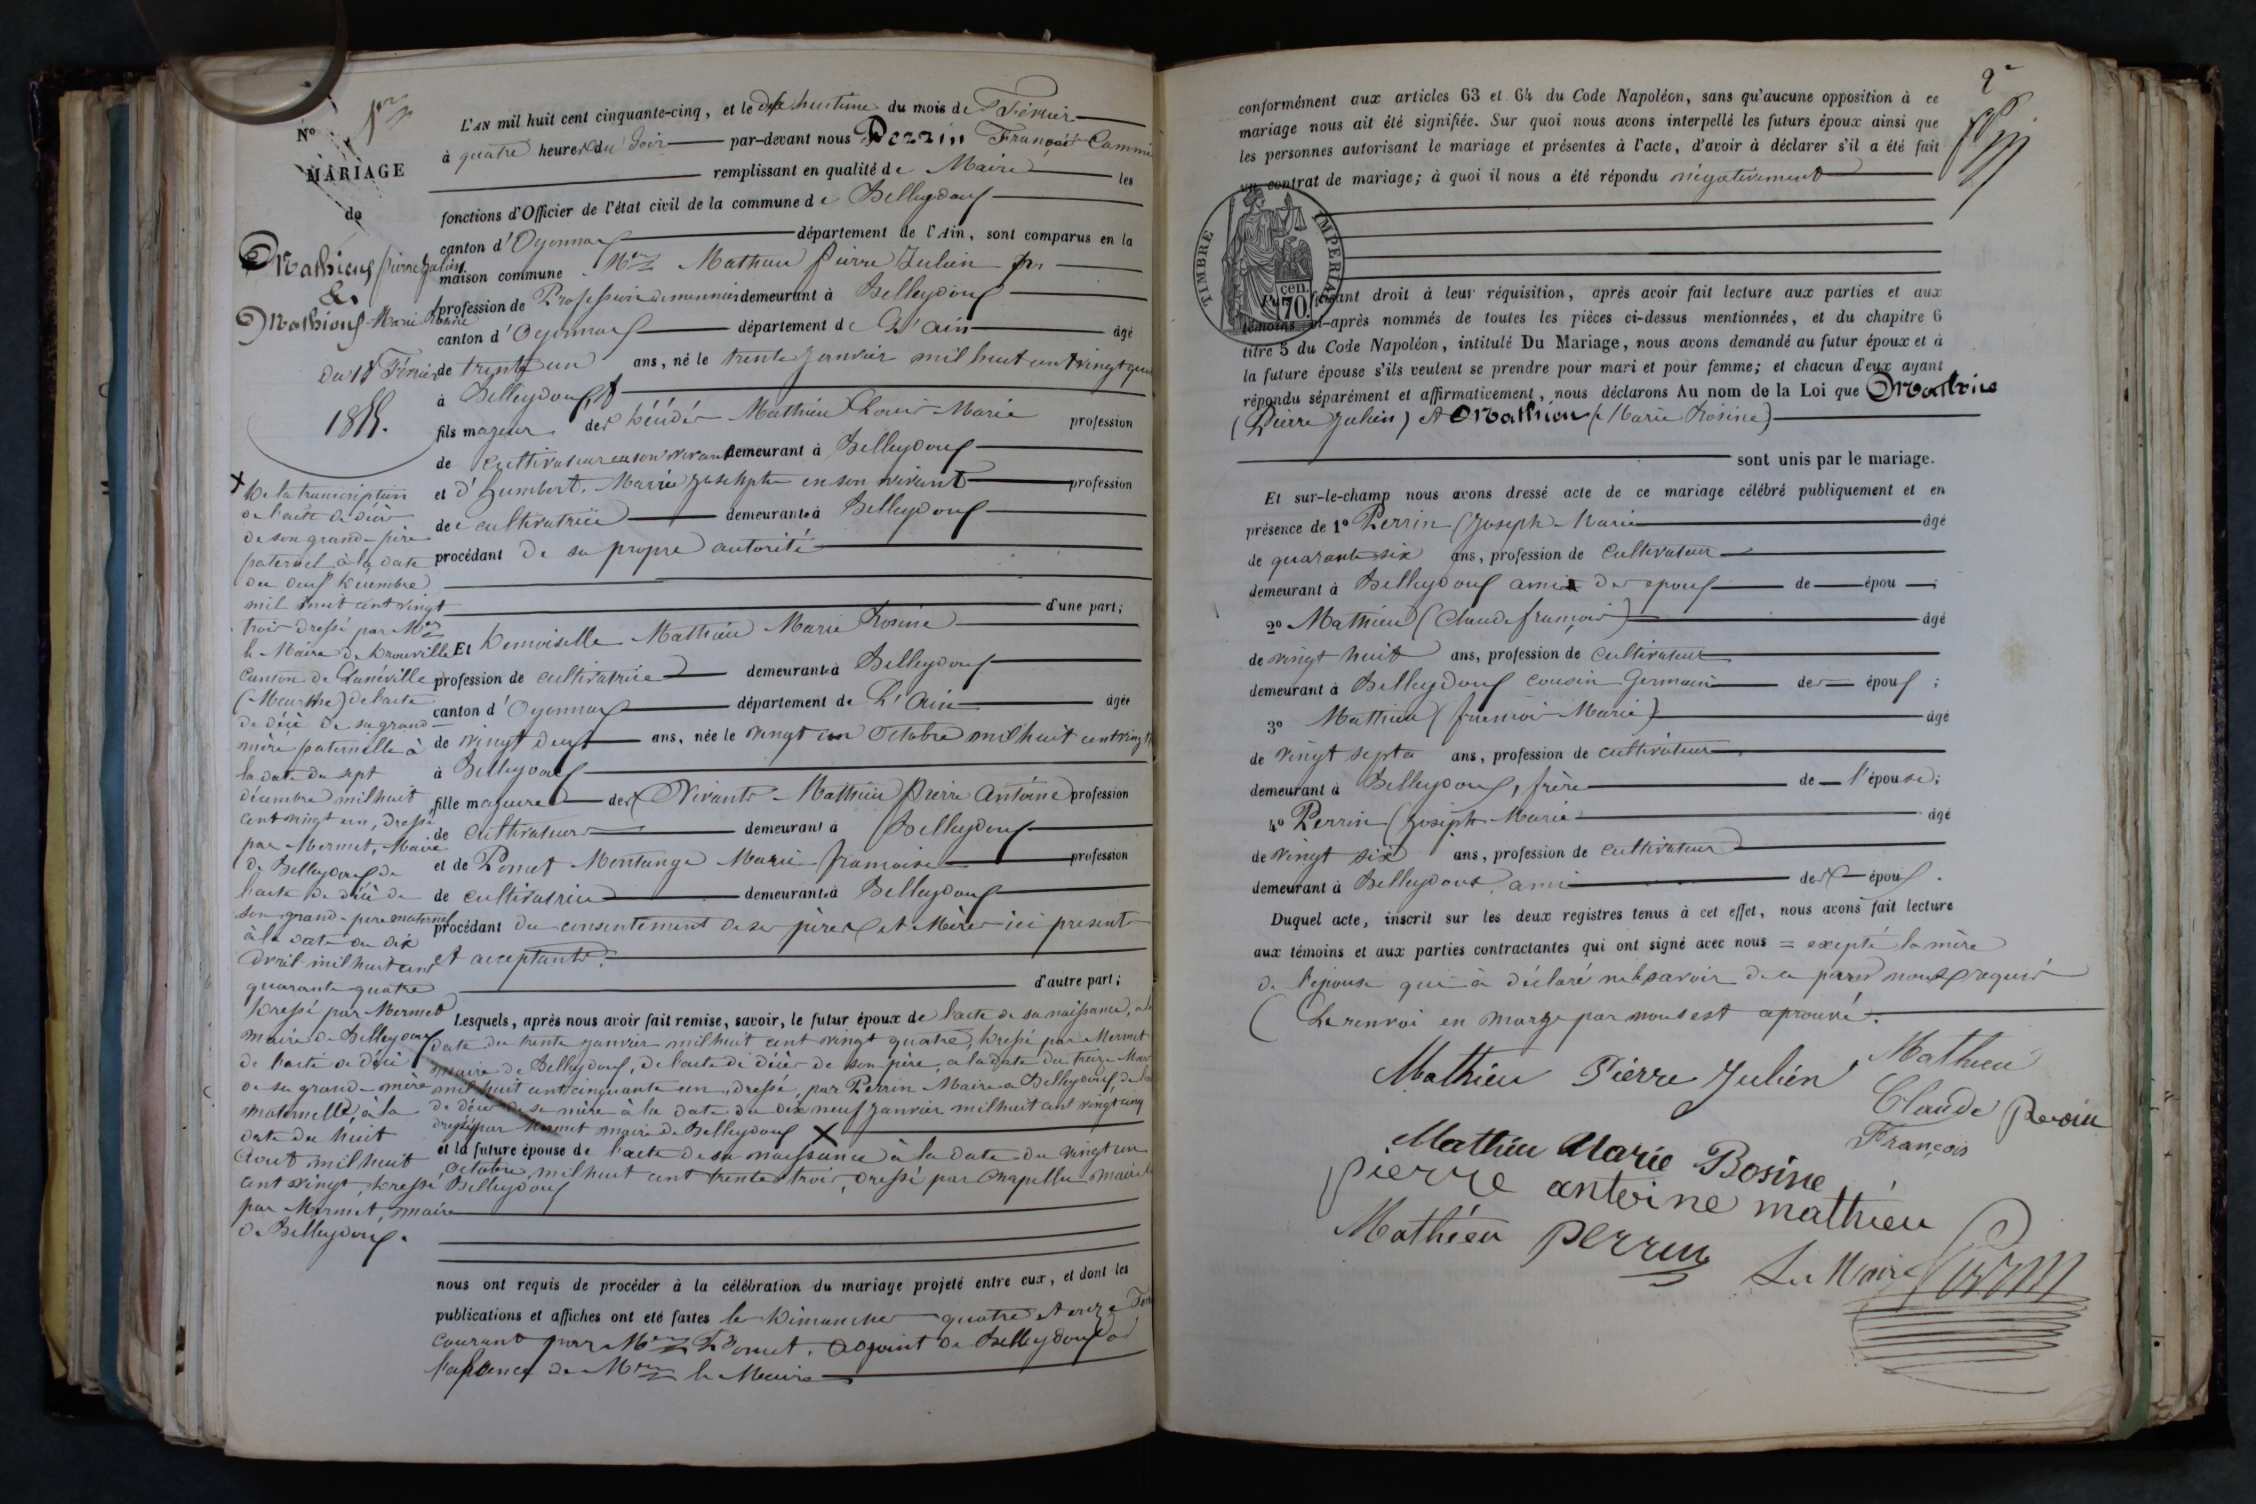 1er
N°
MARIAGE
de
Mathieux pierre Julien
&
Mathieux Marie Rosine
du 18 Février
1855.
L'AN mil huit cent cinquante-cinq, et le dix huitième du mois de Février
à quatre heures du Soir par-devant nous Perrin François Camm
remplissant en qualité de Maire les
fonctions d'Officier de l'état civil de la commune de Belleydoux
canton d'Oyonnax département de l'Ain, sont comparus en la
maison commune Mr Mathieu pierre Julien
profession de demeurant à Belleydoux
canton d'Oyonnax département de L'ain âgé
de trente un ans, né le trente Janvier mil huit cent vingt qua
à Belleydoux
fils majeur des Décédés Mathieu Louis Marie profession
de cultivateur en son vivant demeurant à Belleydoux
et d'humbert Marie Josephte en son vivant profession
de cultivatrice demeurante à Belleydoux
procédant de sa propre autorité
d'une part;
Et Demoiselle Mathieu Marie Rosine
profession de cultivatrice demeurante à Belleydoux
canton d'Oyonnax département de L'Ain âgée
de vingt deux ans, née le vingt un Octobre mil huit cent vingt
à Belleydoux
fille majeure des Vivants Mathieu pierre Antoine profession
de cultivateur demeurant à Belleydoux
et de Pomet Montange Marie françoise profession
de cultivatrice demeurante à Belleydoux
procédant du consentement de ses père et Mère ici présents
et acceptants.
d'autre part;
Lesquels, après nous avoir fait remise, savoir, le futur époux de l'acte de sa naissance, a la
date du trente janvier mil huit cent vingt quatre, Dressé par Mermet
maire de Belleydoux, de l'acte de décès de son père, a la date du treize Mars
mil huit cent cinquante un, dressé par Perrin Maire a Belleydoux, de l'a
de décès de sa mère à la date du dix neuf janvier mil huit cent vingt cinq
dressé par Mermet maire de Belleydoux X
et la future épouse de l'acte de sa naissance à la date du vingt un
octobre mil huit cent trente trois, dressé par Chapellu maire
Belleydoux
nous ont requis de procéder à la célébration du mariage projeté entre eux, et dont les
publications et affiches ont été faites le Dimanches quatre et onze
courant par Mr Pomet, adjoint de Belleydoux
l'absence de Mr le Maire
X De la transcription
de l'acte de décès
de son grand-père
paternel à la date
du deux Décembre
mil huit cent vingt
trois dressé par Mr
le Maire de Drouville
Canton de Lunéville
(Meurthe) de l'acte
de décès de sa grand
mère paternelle à
la date du sept
décembre mil huit
cent vingt un, dressé
par Mermet, Maire
de Belleydoux de
l'acte de décès de
son grand-père maternel
à la date du dix
Avril mil huit cent
quarante quatre
Dressé par Mermet
maire de Belleydoux
de l'acte de décès
de sa grande mère
maternelle, à la
date du huit
Août mil huit
cent vingt, Dressé
par Mermet, maire
de Belleydoux.
2e
conformément aux articles 63 et 64 du Code Napoléon, sans qu'aucune opposition à ce
mariage nous ait été signifiée. Sur quoi nous avons interpellé les futurs époux ainsi que
les personnes autorisant le mariage et présentes à l'acte, d'avoir à déclarer s'il a été fait
un contrat de mariage; à quoi il nous a été répondu négativement
TIMBRE IMPERIAL
cen.
70.
faisant droit à leur réquisition, après avoir fait lecture aux parties et aux
témoins ci-après nommés de toutes les pièces ci-dessus mentionnées, et du chapitre 6
titre 5 du Code Napoléon, intitulé Du Mariage, nous avons demandé au futur époux et à
la future épouse s'ils veulent se prendre pour mari et pour femme; et chacun d'eux ayant
répondu séparément et affirmativement, nous déclarons Au nom de la Loi que
(Pierre Julien) et Mathieu (Marie Rosine)
sont unis par le mariage.
Et sur-le-champ nous avons dressé acte de ce mariage célébré publiquement et en
présence de 1° Perrin (Joseph Marie âgé
de quarante six ans, profession de Cultivateur
demeurant à Belleydoux ami des epoux de épou ;
2° Mathieu (Claude françois) âgé
de vingt huit ans, profession de cultivateur
demeurant à Belleydoux cousin Germain des époux ;
3° Mathieu (françois Marie) âgé
de vingt sept ans, profession de cultivateur
demeurant à Belleydoux, frère de l'épouse;
4° Perrin (Joseph Marie âgé
de vingt six ans, profession de cultivateur
demeurant à Belleydoux, ami des époux.
Duquel acte, inscrit sur les deux registres tenus à cet effet, nous avons fait lecture
aux témoins et aux parties contractantes qui ont signé avec nous = excepté la mère
de l'épouse qui a déclaré ne le savoir de ce par nous requis
Le renvoi en marge par nous est aprouvé.
Mathieu Pierre Julien
Mathieu
Claude
François
Perrin
Mathieu Marie Rosine
pierre antoine mathieu
Mathieu perrin
Le Maire Perrin